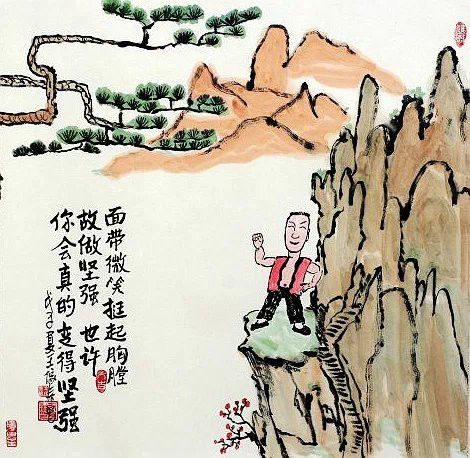 面带微笑挺起胸膛
故做坚强 也许
你会真的变得坚强